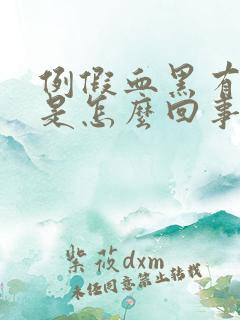 例假血黑有
是怎麼回事
紫筱dxm
未经同意禁止转载